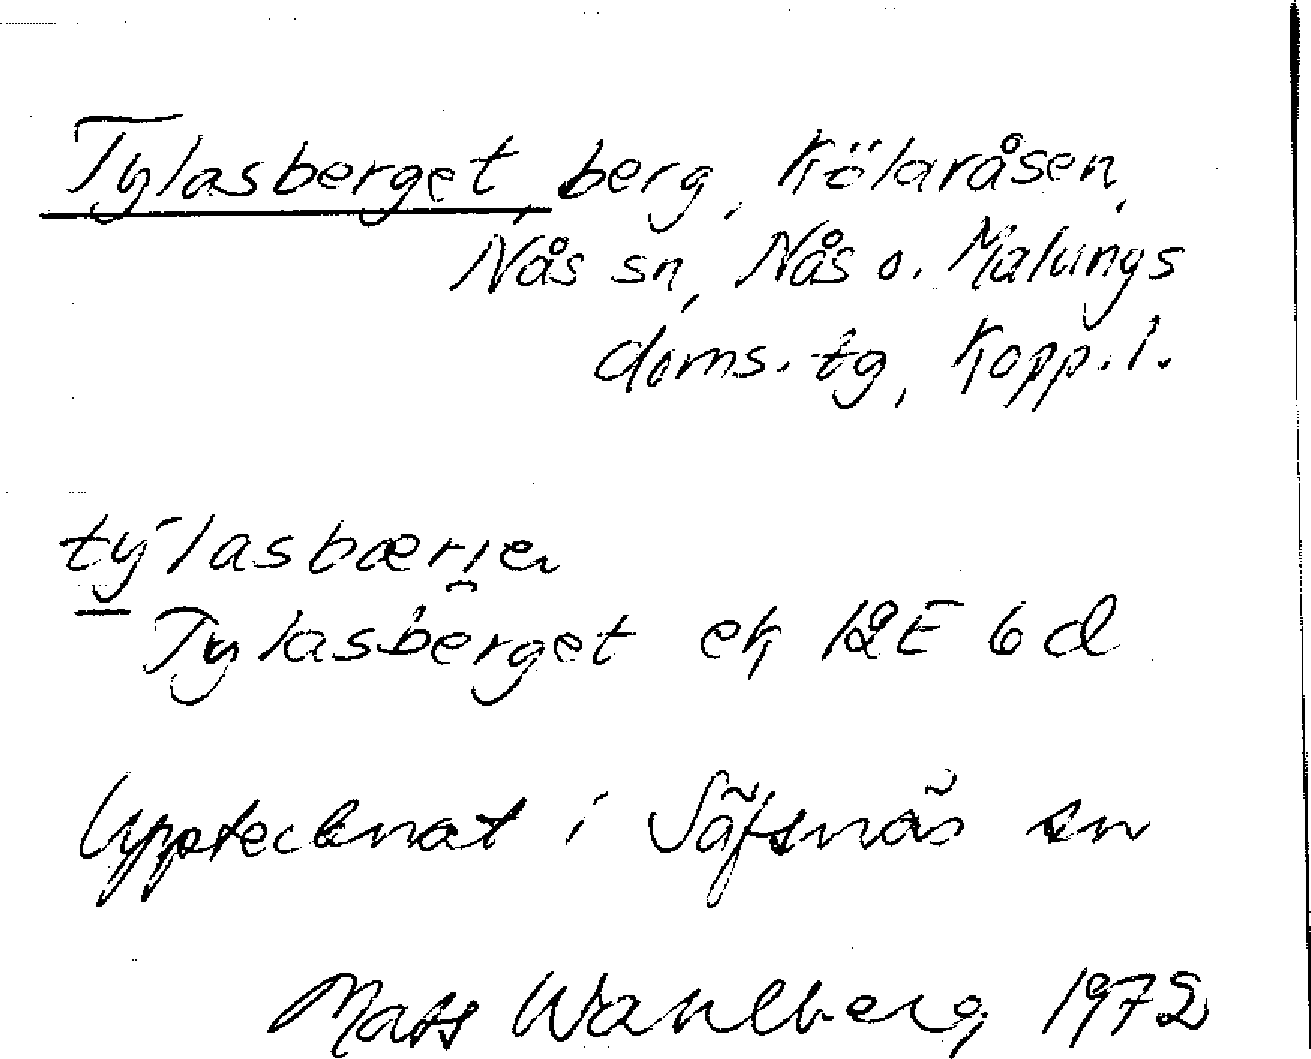 Tylasberget, berg, Kölaråsen,
Nås sn, Nås o. Malungs
doms. tg, Kopp. l.
tylasbærjen
Tylasberget ek 12E 6d
Upptecknat i Säfsnäs sn
Mats Wahlberg 1972